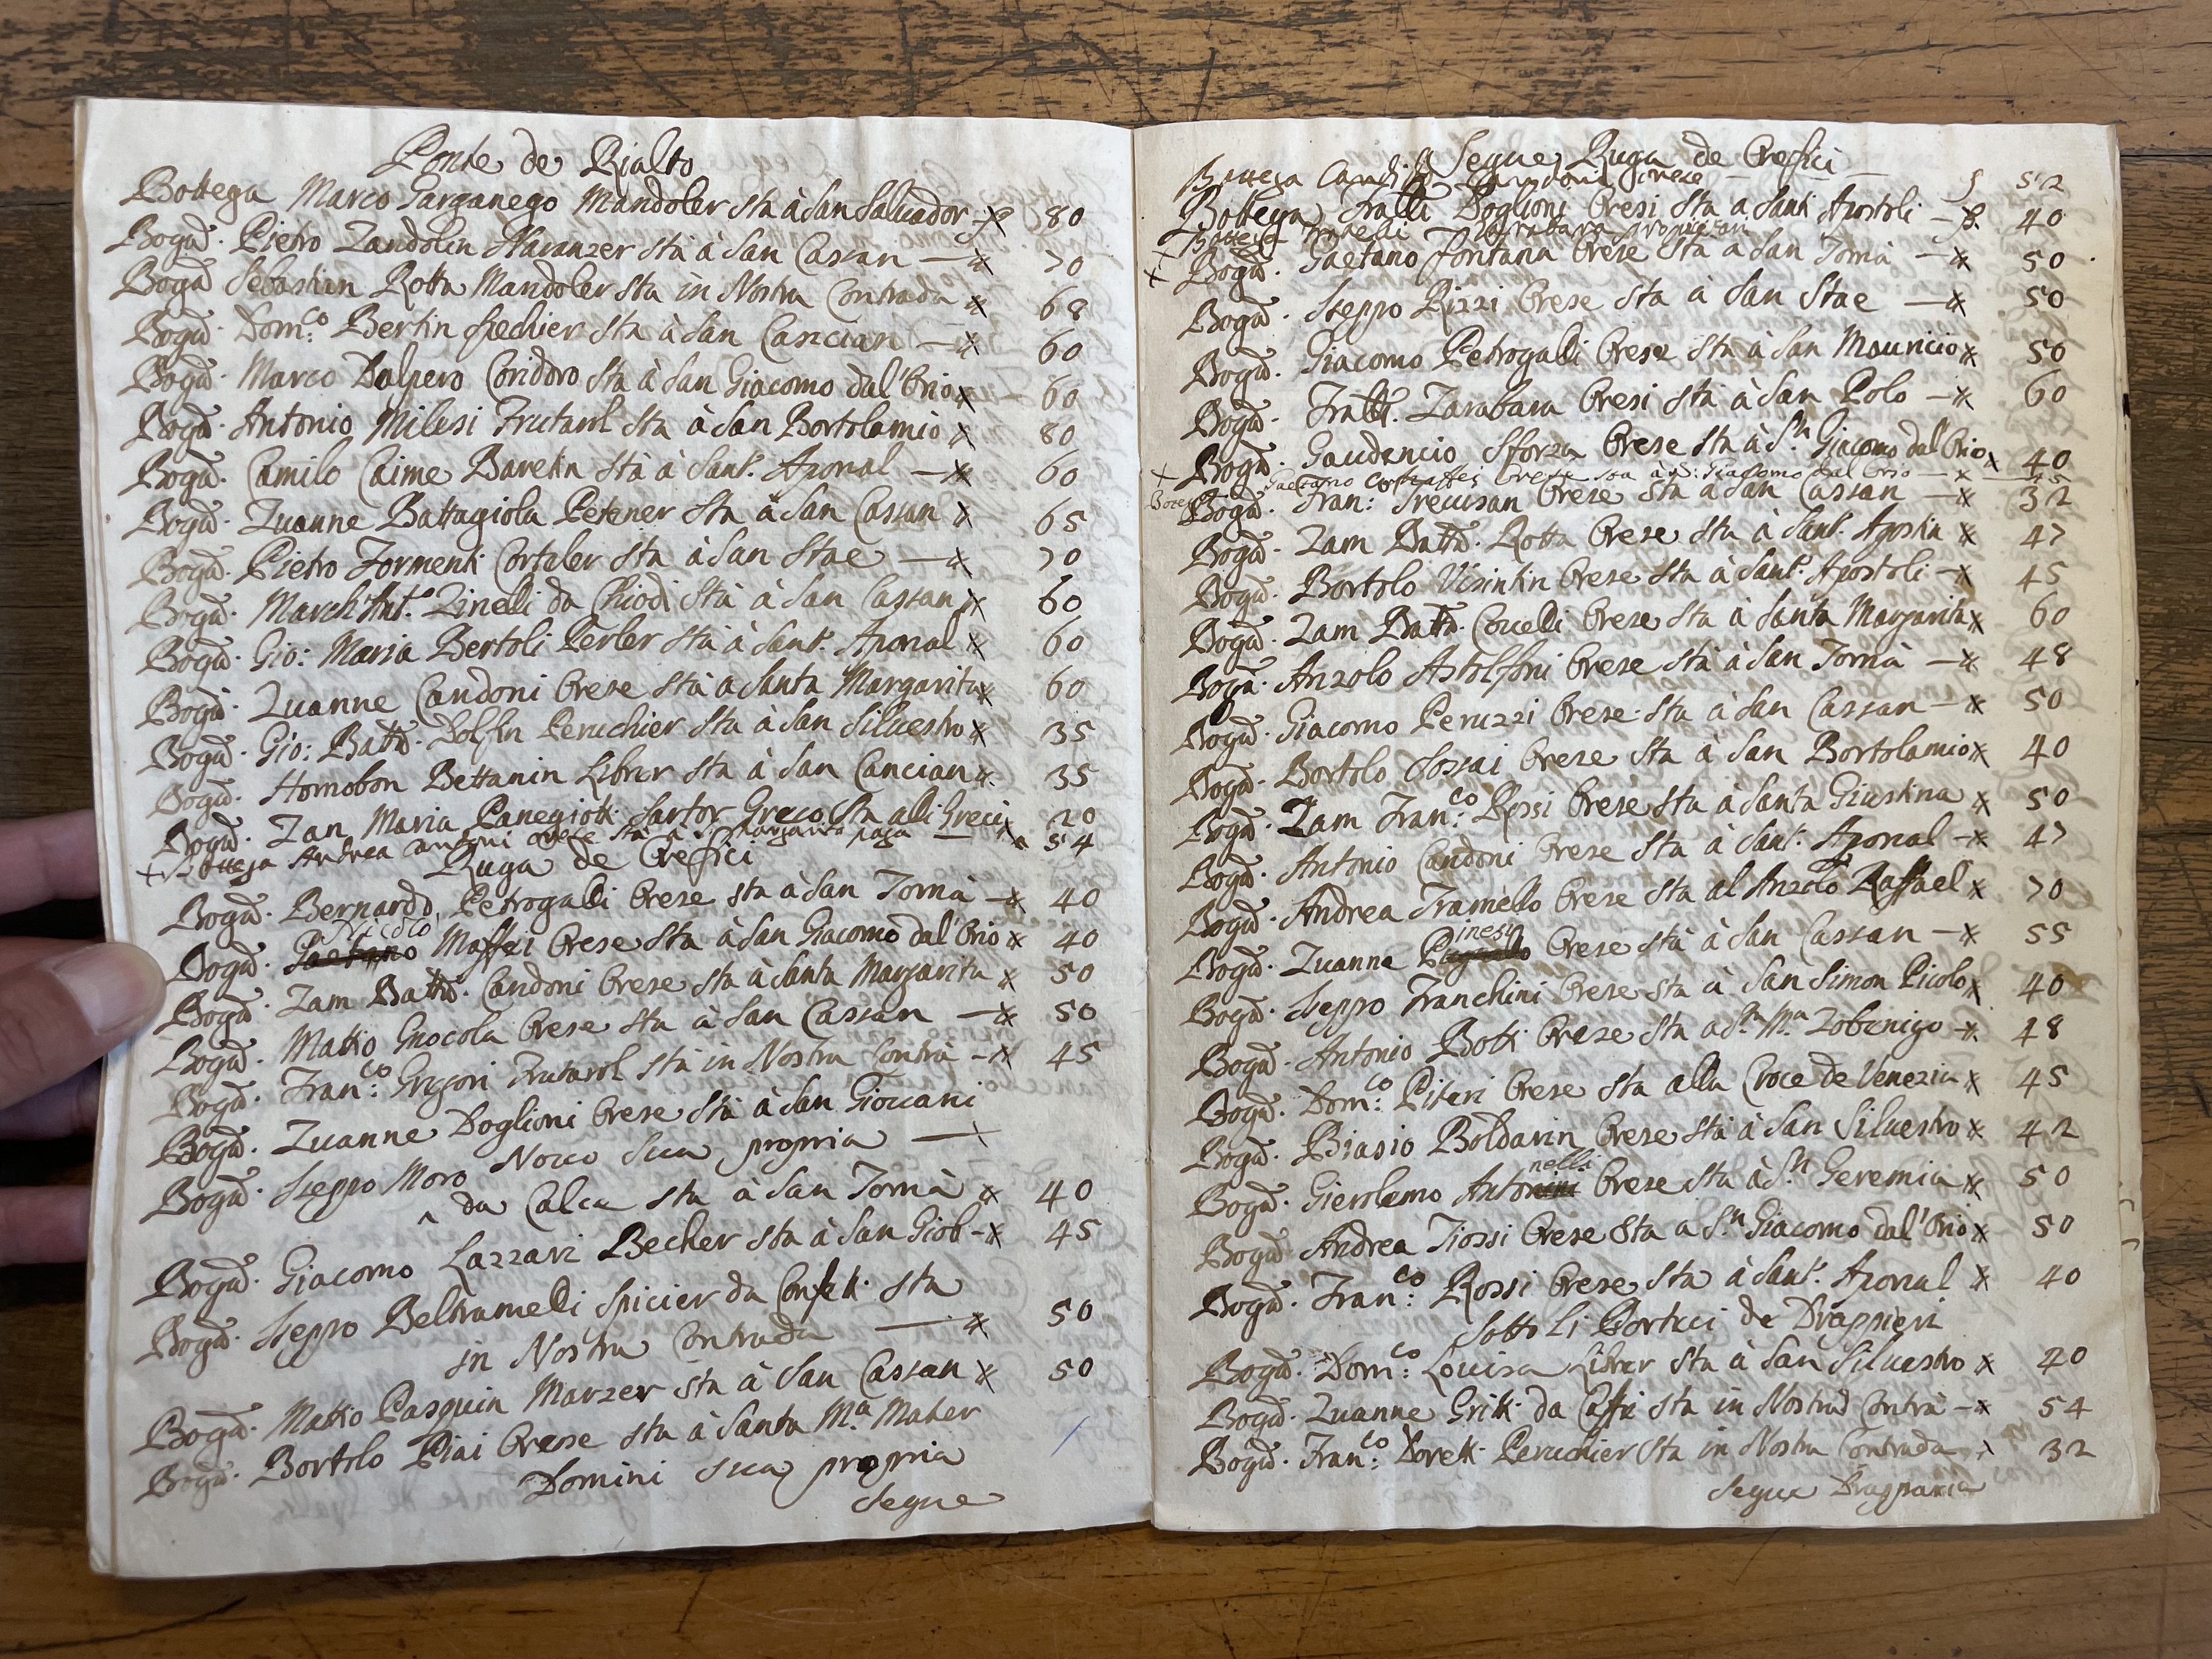 Ponte de Rialto
Bottega Marco Garganego Mandoler sta à San Salvador 80
Bogã. Pietro Zandolin Naranzer sta à San Cassan 70
Bogã Sebastian Rotta Mandoler sta in Nostra Contrada 68
Bogã. Dom:co Bertin Spechier sta à San Cancian 60
Bogã. Marco Dalpero Coridoro sta à San Giacomo dal'Orio 60
Bogã. Antonio Milesi Frutarol sta à San Bortolamio 80
Bogã. Camilo Caime Baretin sta à Sant. Aponal 60
Bogã. Zuanne Battagiola Petener sta à San Cassan 65
Bogã. Pietro Formenti Corteler sta à San Stae 70
Bogã. March'Ant.o Zinelli da Chiodi sta à San Cassan 60
Bogã. Gio: Maria Bertoli Perler sta à Sant. Aponal 60
Bogã. Zuanne Candoni Orese sta a Santa Margarita 60
Bogã. Gio: Battã. Dolfin Peruchier sta à San Siluestro 35
Bogã. Homobon Bettanin Librer sta à San Cancian 35
Bogã. Zan Maria Panegiotti Sartor Greco sta alli Greci 20
+ Bottega Andrea Antoni orese sta a S. Margarita paga 54
Ruga de Orefici
Bogã. Bernardo Petrogalli Orese sta à San Tomà 40
Bogã. Gaetano Maffei Orese sta à San Giacomo dal'Orio 40
Bogã. Zam Battã. Candoni Orese sta à Santa Margarita 50
Bogã. Mattio Gnocola Orese sta à San Cassan 50
Bogã. Fran:co Grigori Frutarol sta in Nostra Contrà 45
Bogã. Zuanne Doglioni Orese sta à San Giouani
Nouo Sua propria
Bogã. Iseppo Moro
^ da Calce sta à San Tomà 40
Bogã. Giacomo Lazzari Becher sta à San Giob 45
Bogã. Iseppo Beltramelli Spicier da Confetti sta
in Nostra Contrada 50
Bogã. Mattio Pasquin Marzer sta à San Cassan 50
Bogã. Bortolo Piai Orese sta à Santa Ma. Mater
Domini sua propria
Segue
Segue Ruga de Orefici
Bottega Candoni Orese 52
Bottega Fralli Doglioni Oresi sta a Santi Apostoli 40
Bottega Fratelli Zarabara propria
+ Bogã. Gaetano Fontana Orese sta à San Tomà 50
Bogã. Iseppo Rizzi Orese sta à San Stae 50
Bogã. Giacomo Petrogalli Orese sta à San Mauricio 50
Bogã. Fralli. Zarabara Oresi sta à San Polo 60
Bogã. Gaudencio Sforza Orese sta à Sn Giacomo dal'Orio 40
+ Gaetano Maffei Orese sta à S: Giacomo dal Orio
Bogã. Fran: Trecusan Orese sta à San Cassan 32
Bogã. Zam Battã. Rotta Orese sta à Sant. Agostin 47
Bogã. Bortolo Visintin Orese sta à Sant. Apostoli 45
Bogã. Zam Battã. Couelli Orese sta à Santa Margarita 60
Bogã. Anzolo Astolfoni Orese sta à San Tomà 48
Bogã. Giacomo Peruzzi Orese sta à San Cassan 50
Bogã. Bortolo Sossai Orese sta à San Bortolamio 40
Bogã. Zam Fran:co Rossi Orese sta à Santa Giustina 50
Bogã. Antonio Candoni Orese sta à Sant. Aponal 47
Bogã. Andrea Tramello Orese sta al Anzolo Raffael 70
Bogã. Zuanne Pinesi Orese sta à San Cassan 55
Bogã. Iseppo Franchini Orese sta à San Simon Picolo 40
Bogã. Antonio Botti Orese sta a Sta Ma Zobenigo 48
Bogã. Dom:co Piteri Orese sta alla Croce de Venezia 45
Bogã. Biasio Boldarin Orese sta à San Siluestro 42
Bogã. Gierolemo Antonelli Orese sta à Sn Geremia 50
Bogã. Andrea Tiossi Orese sta a Sn Giacomo dal'Orio 50
Bogã. Fran:co Rossi Orese sta à Sant. Aponal 40
Sotto li Portici de Drappieri
Bogã. Dom:co Louisa Librer sta à San Siluestro 40
Bogã. Zuanne Gritti da Caffè sta in Nostra Contrà 54
Bogã. Fran:co Doretti Peruchier sta in Nostra Contrada 32
Segue Drapparia